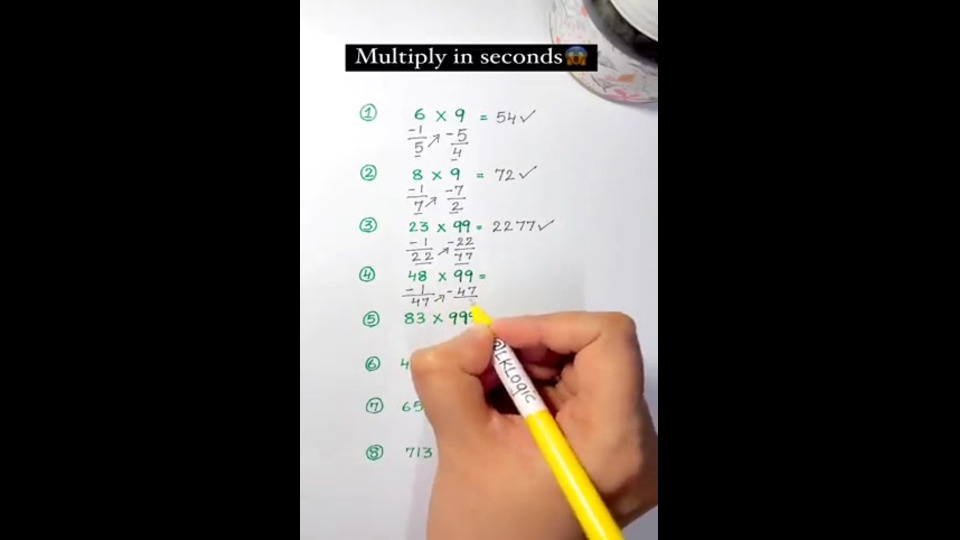 Multiply in seconds😱
① 6 × 9 = 54✓
-1 ↗ -5
5 4
② 8 × 9 = 72✓
-1 ↗ -7
7 2
③ 23 × 99 = 2277✓
-1 ↗ -22
22 77
④ 48 × 99 =
-1 ↗ -47
47
⑤ 83 × 999
⑥ 4
⑦ 65
⑧ 713
@LKLogic